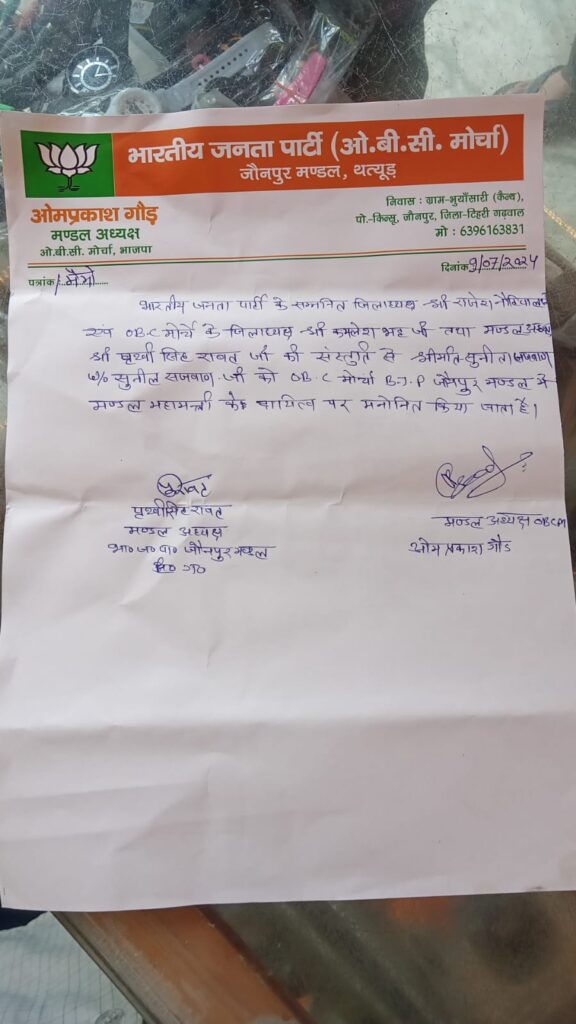 भारतीय जनता पार्टी (ओ.बी.सी. मोर्चा)
जौनपुर मण्डल, थत्यूड़
ओमप्रकाश गौड़
मण्डल अध्यक्ष
ओ.बी.सी. मोर्चा, भाजपा
निवास : ग्राम-भुयाँसारी (कैन्थ),
पो.-किन्सू, जौनपुर, जिला-टिहरी गढ़वाल
मो : 6396163831
पत्रांक / मैमो
दिनांक 9/07/2024
भारतीय जनता पार्टी के सम्मनित जिलाध्यक्ष श्री राजेश नौटियाल जी
एवं OBC मोर्चे के जिलाध्यक्ष श्री कमलेश भट्ट जी तथा मण्डल अध्यक्ष
श्री पृथ्वी सिंह रावत जी की संस्तुति से श्रीमति सुनीता सजवाण
w/o सुनील सजवाण जी को OBC मोर्चा B.J.P जौनपुर मण्डल में
मण्डल महामन्त्री के दायित्व पर मनोनित किया जाता है।
पृथ्वीसिंह रावत
मण्डल अध्यक्ष
भा० ज० पा० जौनपुर मण्डल
टि० ग०
मण्डल अध्यक्ष OBCM
ओम प्रकाश गौड